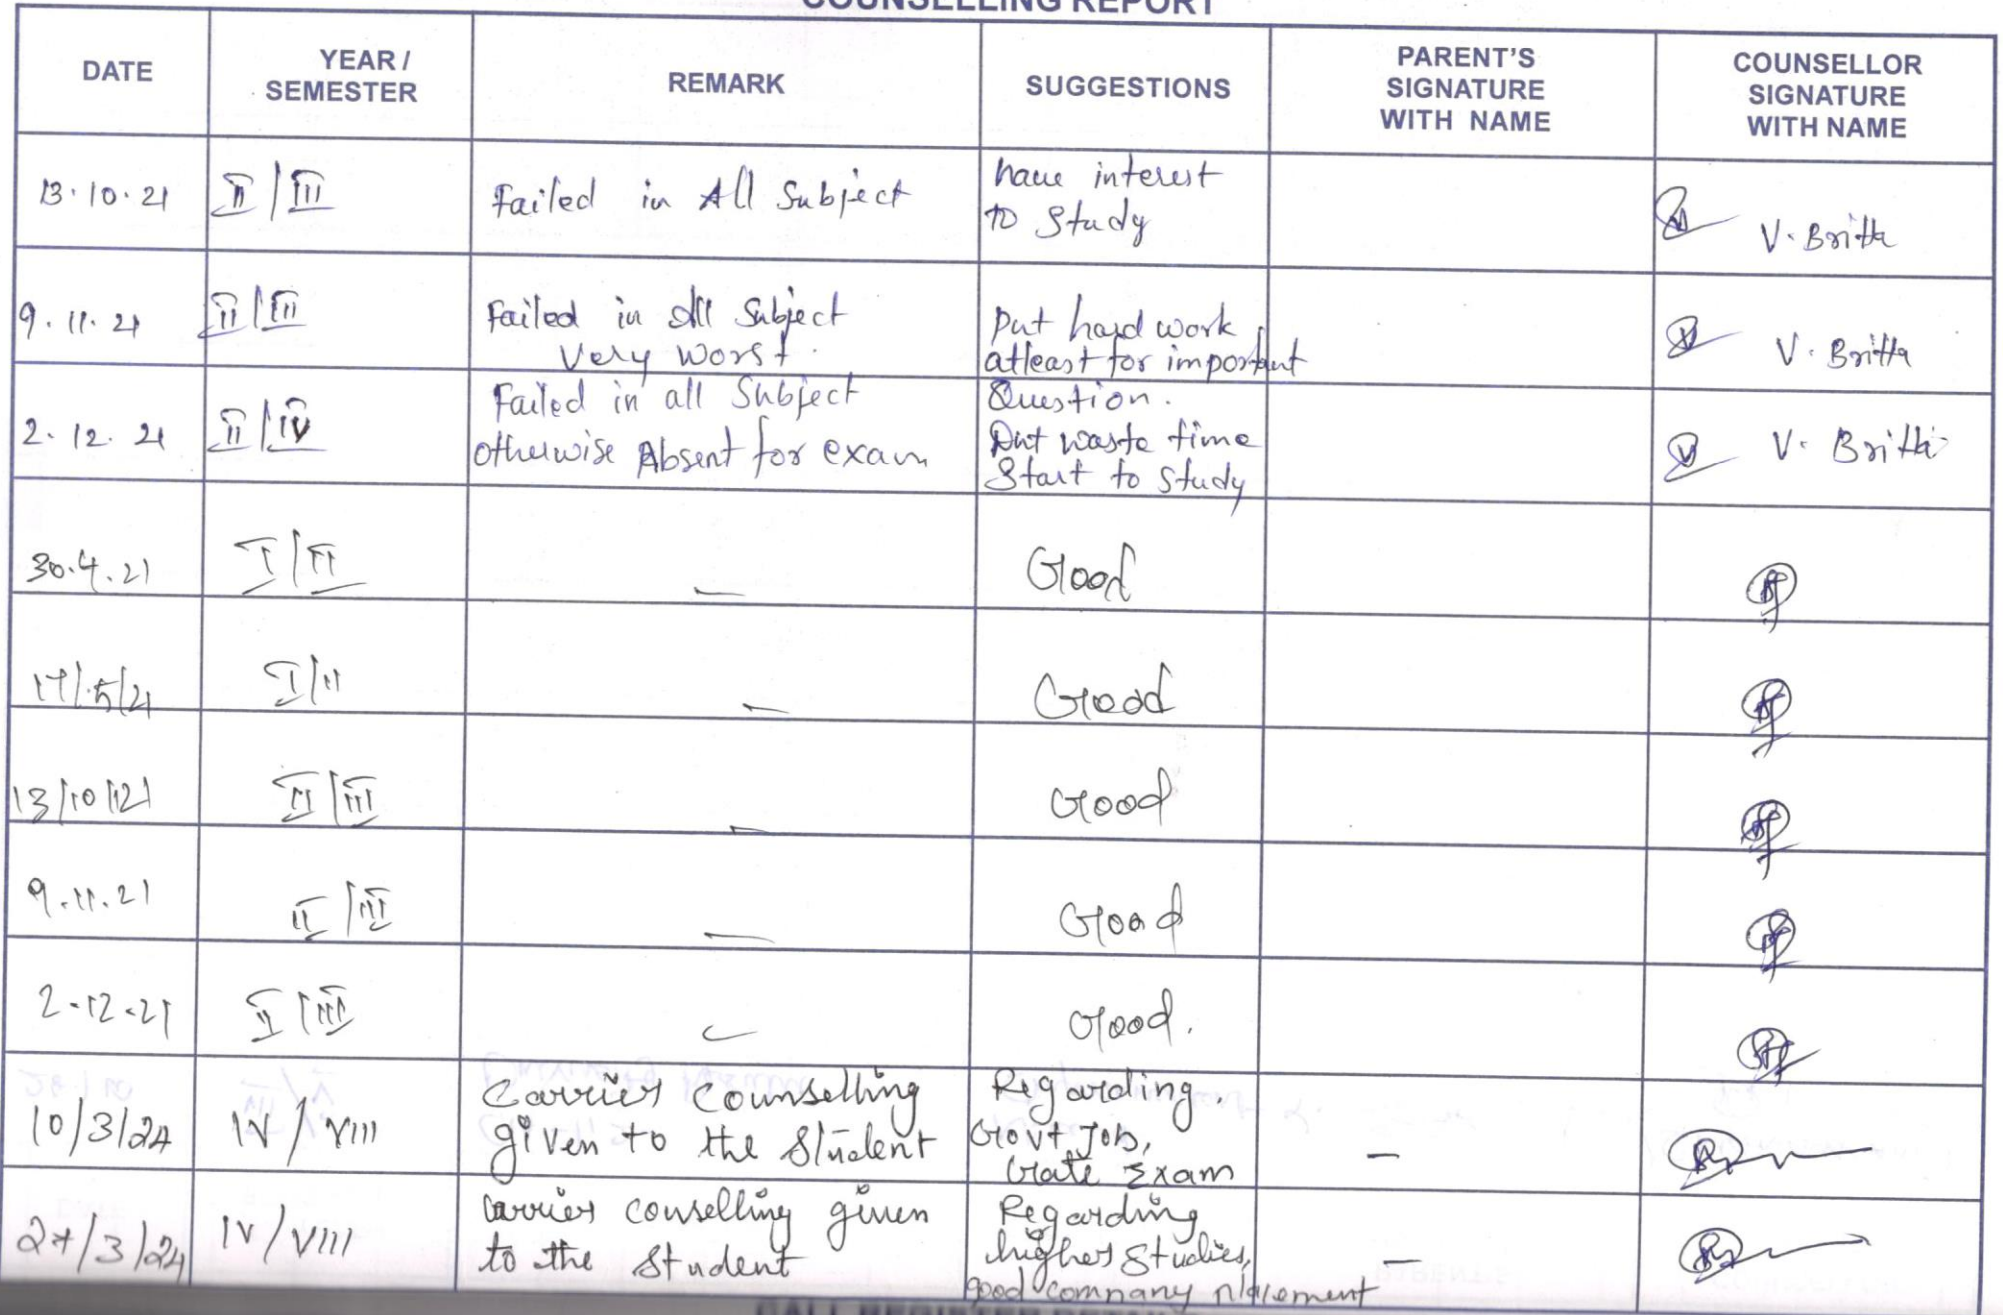 COUNSELLING REPORT
DATE YEAR / SEMESTER REMARK SUGGESTIONS PARENT'S SIGNATURE WITH NAME COUNSELLOR SIGNATURE WITH NAME
13.10.21 II/III Failed in All Subject have interest
to Study V. Britta
9.11.21 II/III Failed in all Subject put hard work
Very Worst. atleast for important V. Britta
2.12.21 II/IV Failed in all Subject Question.
otherwise Absent for exam Dnt waste time V. Britta
Start to Study
30.4.21 I/II — Good
17/5/21 I/II — Good
13/10/21 II/III — Good
9.11.21 II/III — Good
2.12.21 II/III — Good.
10/3/24 IV/VIII Carrier Counselling Regarding.
given to the Student Govt Job, —
Gate Exam
27/3/24 IV/VIII Carrier conselling given Regarding
to the Student higher Studies, —
good company placement